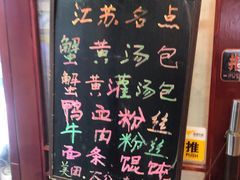 江苏名点
蟹黄汤包
蟹黄灌汤包
鸭血粉丝
牛肉粉丝
西 条 馄饨
美团
推
推
PUSH